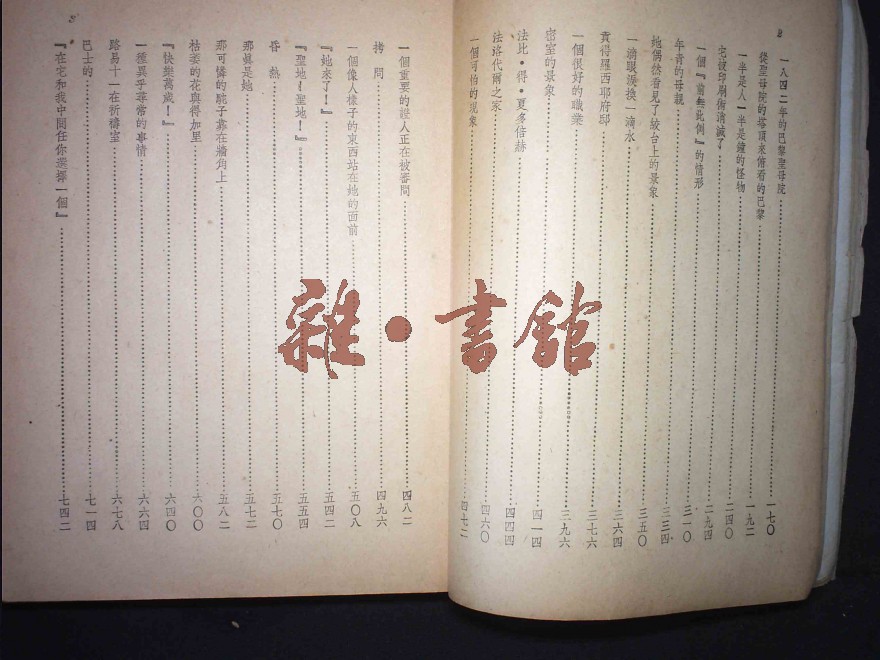 2
一八四二年的巴黎聖母院……一七〇
從聖母院的塔頂來俯看的巴黎……一九二
一半是人一半是鐘的怪物……二四〇
它被印刷術消滅了……二九四
一個『前無此例』的情形……三一〇
年青的母親……三三四
她偶然看見了絞台上的景象……三五〇
一滴眼淚換一滴水……三六四
貢得羅西耶府邸……三七六
一個很好的職業……三九六
密室的景象……四一四
法比·得·夏多倍赫……四四四
法洛代爾之家……四六〇
一個可怕的現象……四七二
3
一個重要的證人正在被審問……四八二
拷問……四九六
一個像人樣子的東西站在她的面前……五〇八
『她來了！』……五四二
『聖地！聖地！』……五五四
昏熱……五七〇
那眞是她……五七二
那可憐的駝子靠在牆角上……五八二
枯萎的花與得加里……六〇〇
『快樂萬歲！』……六四〇
一種異乎尋常的事情……六六四
路易十一在祈禱室……六七八
巴士的……七一四
『在它和我中間任你選擇一個』……七四二
雜·書館